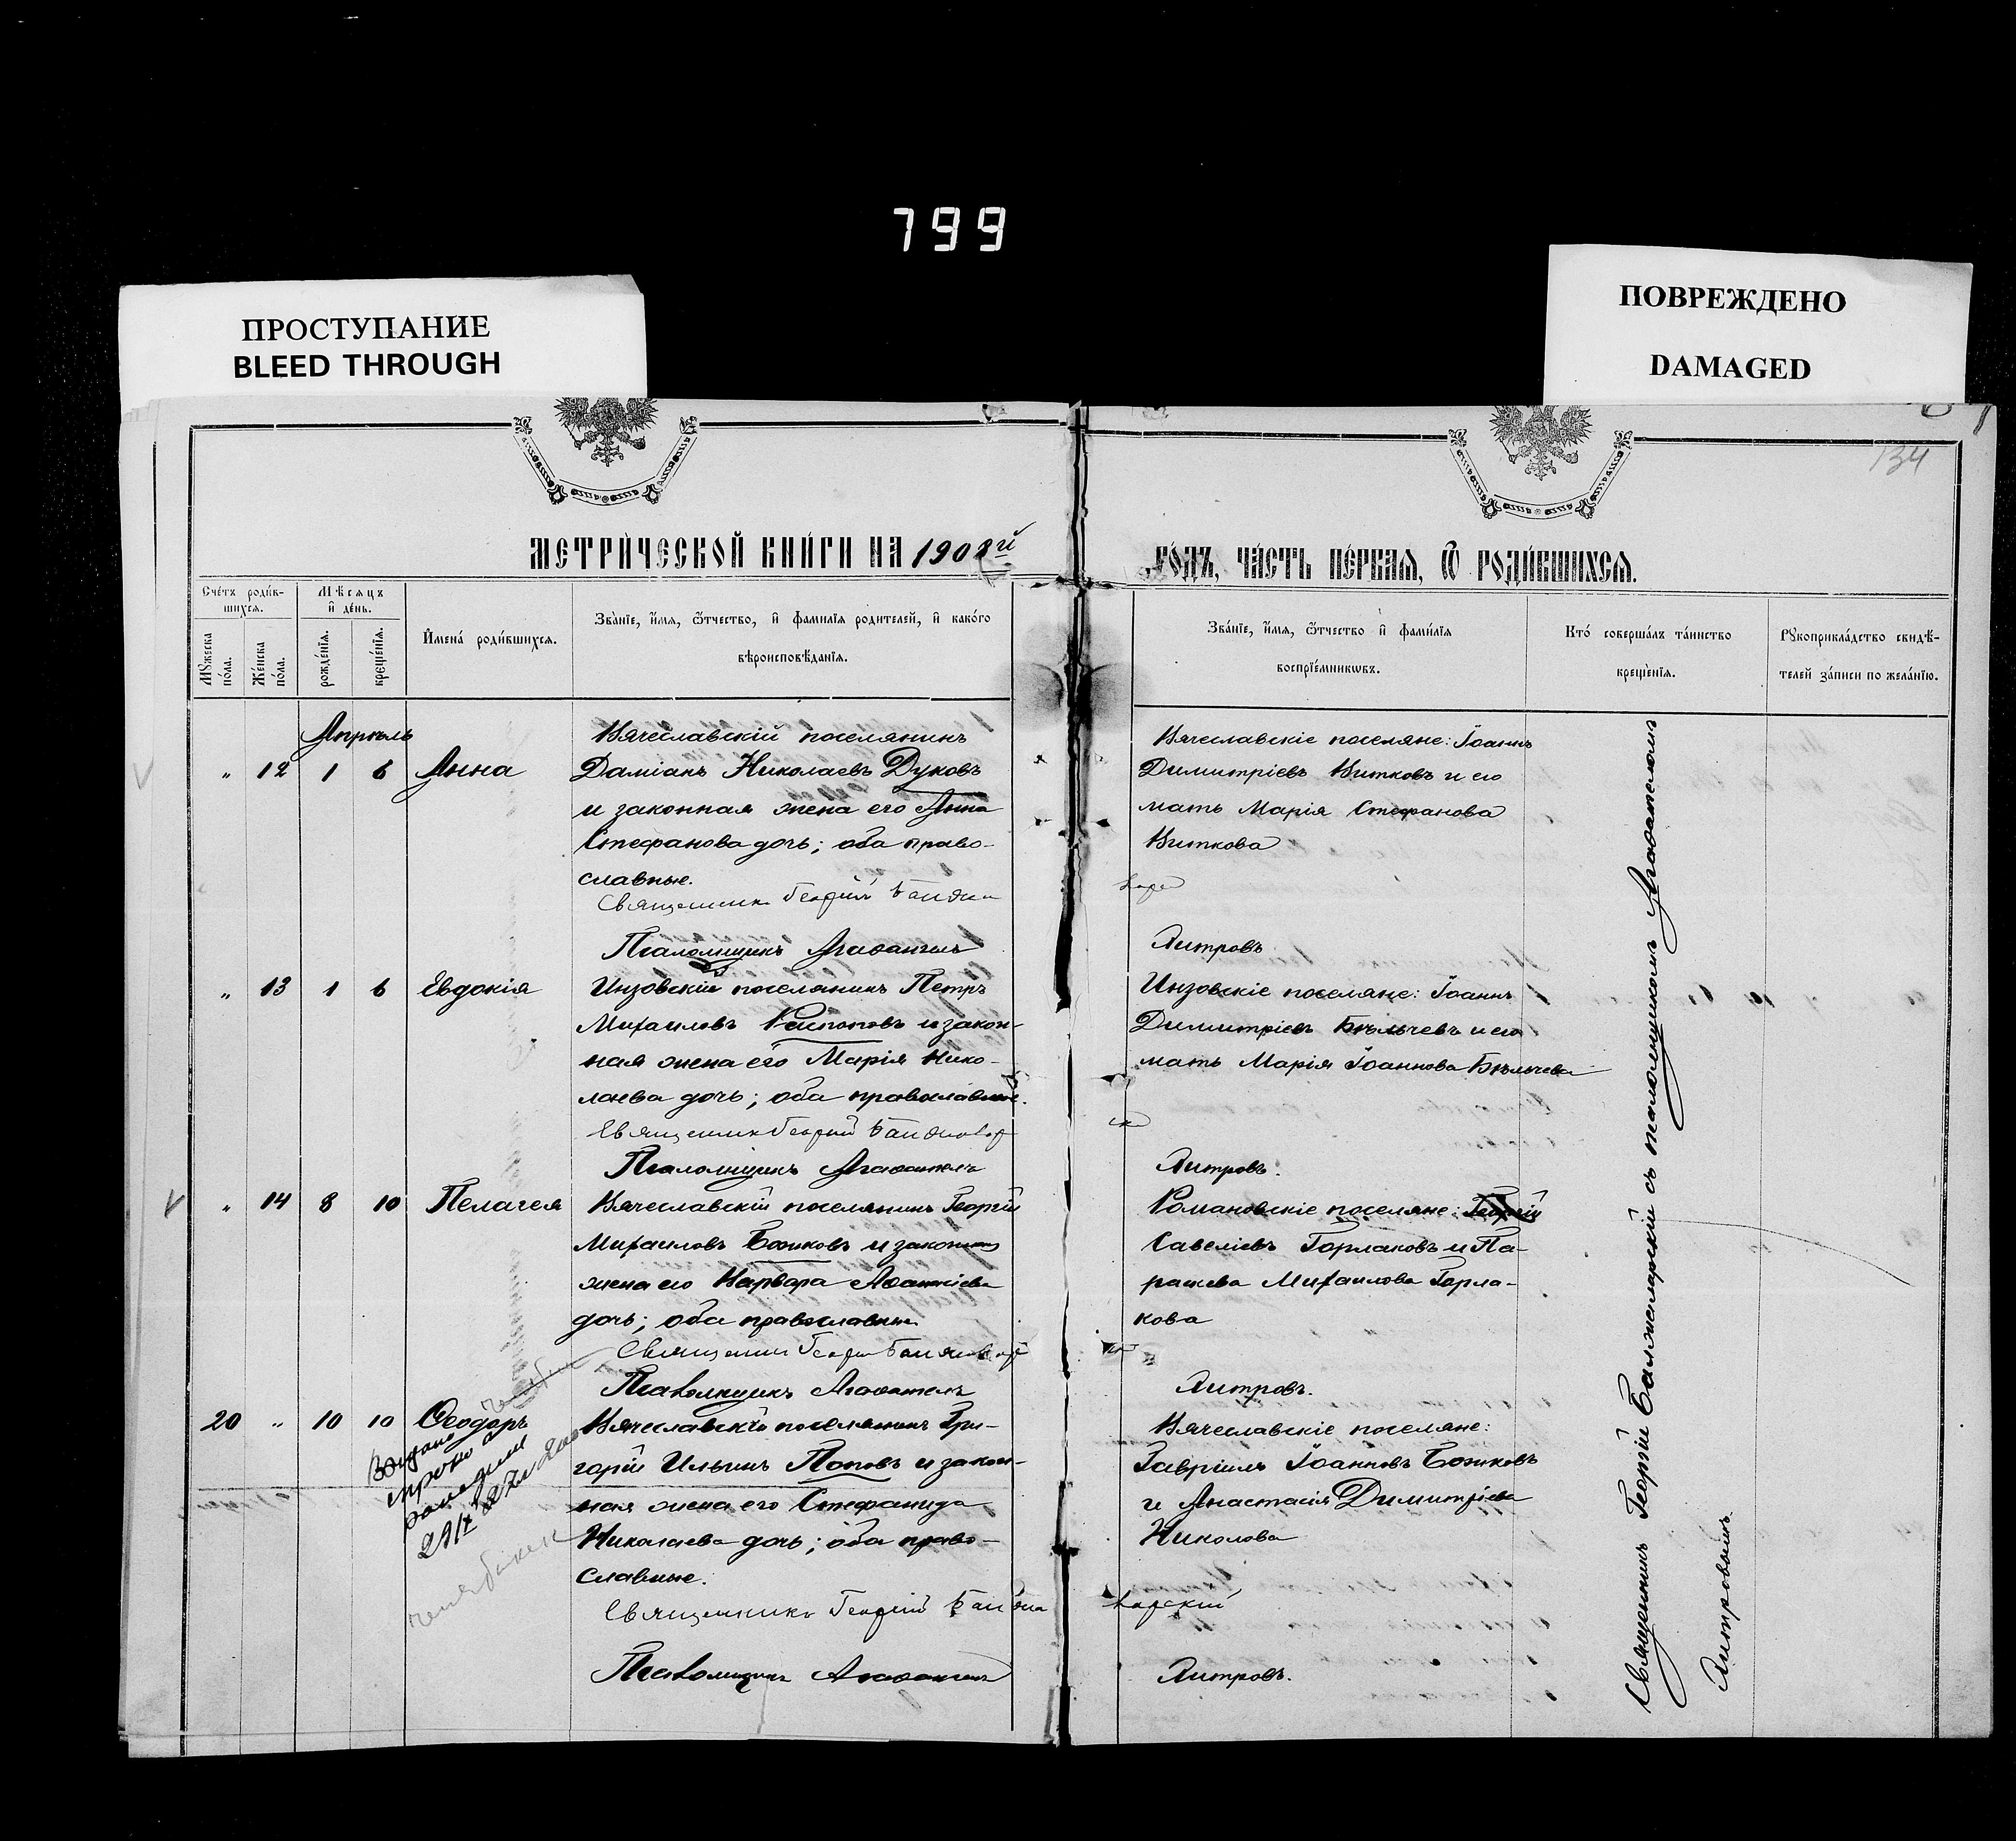 799
ПРОСТУПАНИЕ
BLEED THROUGH
ПОВРЕЖДЕНО
DAMAGED
134
МЕТРИ́ЧЕСКОЙ КНИ́ГИ НА 1908й
ГО́ДЪ, ЧА́СТЬ ПЕ́РВАЯ, Ѿ РОДИ́ВШИХСЯ.
Сче́тъ роди́в-
шихся.
Мꙋжеска по́ла.
Же́нска по́ла.
Мѣсяцъ
и҆ де́нь.
рожде́нїѧ.
креще́нїѧ.
И҆мена́ роди́вшихся.
Зва́нїе, и҆́мѧ, ѻ҆́тчество, и҆ фами́лїѧ роди́телей, и҆ како́гѡ
вѣроисповѣ́данїѧ.
Зва́нїе, и҆́мѧ, ѻ҆́тчество и҆ фами́лїѧ
воспрїе́мникѡвъ.
Кто́ соверша́лъ та́инство
креще́нїѧ.
Рꙋкоприкла́дство свидѣ́-
телей за́писи по жела́нїю.
Апрѣль
" 12 1 6 Анна
Вячеславскій поселянинъ
Даміанъ Николаевъ Дуковъ
и законная жена его Анна
Стефанова дочь; оба право-
славные.
Священникъ Георгій
Псаломщикъ Агафангелъ
Вячеславскіе поселяне: Іоаннъ
Димитріевъ Витковъ и его
мать Марія Стефанова
Виткова
Питровъ
" 13 1 6 Евдокія
Инзовскій поселянинъ Петръ
Михаиловъ и закон-
ная жена его Марія Нико-
лаева дочь; оба православные.
Священникъ Георгій
Псаломщикъ Агафангелъ
Инзовскіе поселяне: Іоаннъ
Димитріевъ Бѣльчевъ и его
мать Марія Іоаннова Бѣльчева
Питровъ.
" 14 8 10 Пелагея
Вячеславскій поселянинъ Георгій
Михаиловъ Божковъ и законная
жена его Варвара Афанасіева
дочь; оба православные.
Священникъ Георгій
Псаломщикъ Агафангелъ
Романовскіе поселяне: Георгій
Савеліевъ Горлаковъ и Па-
раскева Михаилова Горла-
кова
Питровъ.
20 " 10 10 Ѳеодоръ
Вячеславскій поселянинъ Гри-
горій Ильинъ Поповъ и закон-
ная жена его Стефанида
Николаева дочь; оба право-
славные.
Священникъ Георгій
Псаломщикъ Агафангелъ
Вячеславскіе поселяне:
Гавріилъ Іоанновъ Божковъ
и Анастасія Димитріева
Николова
Питровъ.
Священникъ Георгій Балжаларскій съ псаломщикомъ Агафангеломъ
Питровымъ.